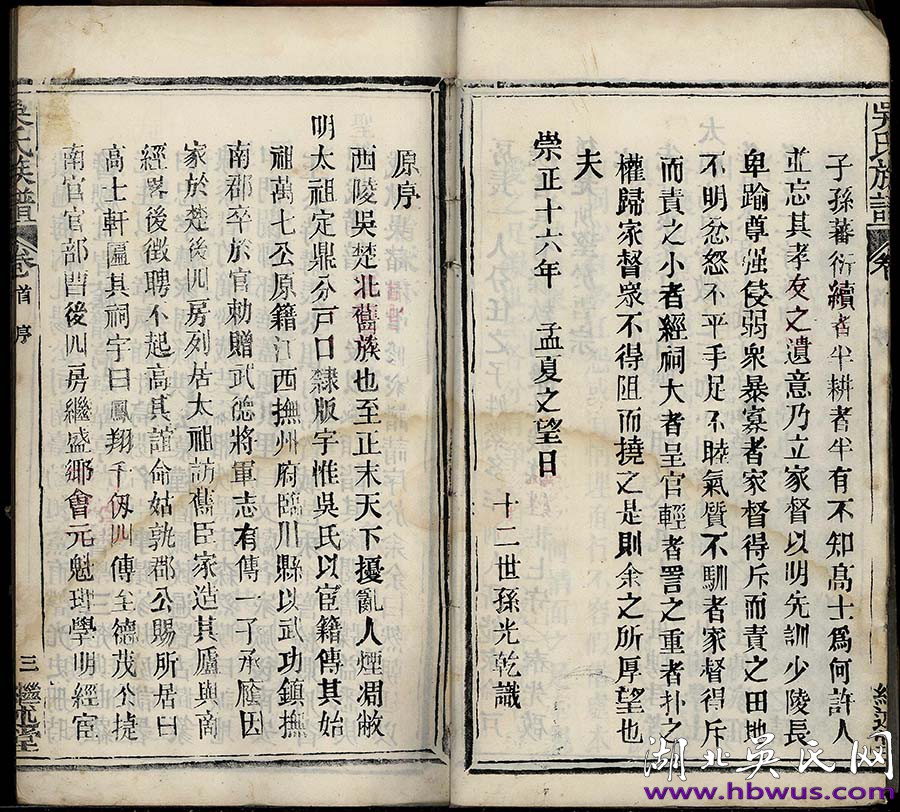 子孫蕃衍續者半耕者半有不知高士爲何許人
並忘其孝友之遺意乃立家督以明先訓少陵長
卑踰尊强侵弱衆暴寡者家督得斥而責之田地
不明忿怒不平手足不睦氣質不馴者家督得斥
而責之小者經祠大者呈官輕者詈之重者扑之
權歸家督眾不得阻而撓之是則余之所厚望也
夫
崇正十六年 孟夏之望日
十二世孫光乾識
原序
西陵吳楚北舊族也至正末天下擾亂人煙凋敝
明太祖定鼎分戸口隸版宇惟吳氏以宦籍傳其始
祖萬七公原籍江西撫州府臨川縣以武功鎮撫
南郡卒於官勅贈武德將軍志有傳一子承廕因
家於楚後四房列居太祖訪舊臣家造其廬與商
經畧後徵聘不起高其誼命姑孰郡公賜所居曰
高士軒匾其祠宇曰鳳翔千仭四傳至德茂公捷
南宮官部曹後四房繼盛鄉會元魁理學明經宦
吳氏族譜 卷首 序 三 繼述堂
吳氏族譜
湖北吳氏网
www.hbwus.com